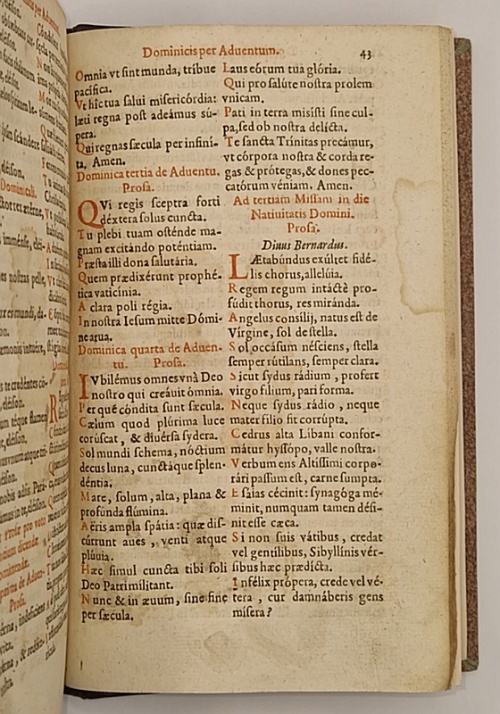 Dominicis per Aduentum.
43
Omnia vt sint munda, tríbue
pacífica.
Vt hîc tua salui misericórdia:
læti regna post adeámus sú-
pera.
Qui regnas sæcula per infini-
ta, Amen.
Dominica tertia de Aduentu.
Prosa.
QVi regis sceptra forti
déxtera solus cuncta.
Tu plebi tuam osténde ma-
gnam excitándo poténtiam.
Præsta illi dona salutária.
Quem prædixérunt prophé-
tica vaticínia.
A clara poli régia.
In nostra Iesum mitte Dómi-
ne arua.
Dominica quarta de Aduen-
tu. Prosa.
IVbilémus omnes vnà Deo
nostro qui creáuit ómnia.
Per qué cóndita sunt sæcula.
Cælum quod plúrima luce
corúscat, & diuérsa sydera.
Sol mundi schema, nóctium
decus luna, cunctáque splen-
déntia.
Mare, solum, alta, plana &
profunda flúmina.
Aëris ampla spátia: quæ dis-
cúrrunt aues, venti atque
plúuia.
Hæc simul cuncta tibi soli
Deo Patri mílitant.
Nunc & in æuum, sine fine
per sæcula.
Laus eórum tua glória.
Qui pro salúte nostra prolem
vnicam.
Pati in terra misísti sine cul-
pa, sed ob nostra delícta.
Te sancta Trínitas precámur,
vt córpora nostra & corda re-
gas & prótegas, & dones pec-
catórum véniam. Amen.
Ad tertiam Missam in die
Natiuitatis Domini.
Prosa.
Diuus Bernardus.
LÆtabúndus exúltet fidé-
lis chorus, allelúia.
Regem regum intáctè pro-
fúdit thorus, res miránda.
Angelus consílij, natus est de
Vírgine, sol de stella.
Sol occásum nésciens, stella
semper rútilans, semper clara.
Sicut sydus rádium, profert
virgo fílium, pari forma.
Neque sydus rádio, neque
mater fílio fit corrúpta.
Cedrus alta Líbani confor-
mátur hyssópo, valle nostra.
Verbum ens Altíssimi corpo-
rári passum est, carne sumpta.
Esaias cécinit: synagóga mé-
minit, numquam tamen dési-
nit esse cæca.
Si non suis vátibus, credat
vel gentílibus, Sibyllínis vér-
sibus hæc prædícta.
Infélix própera, crede vel vé-
tera, cur damnáberis gens
mísera?